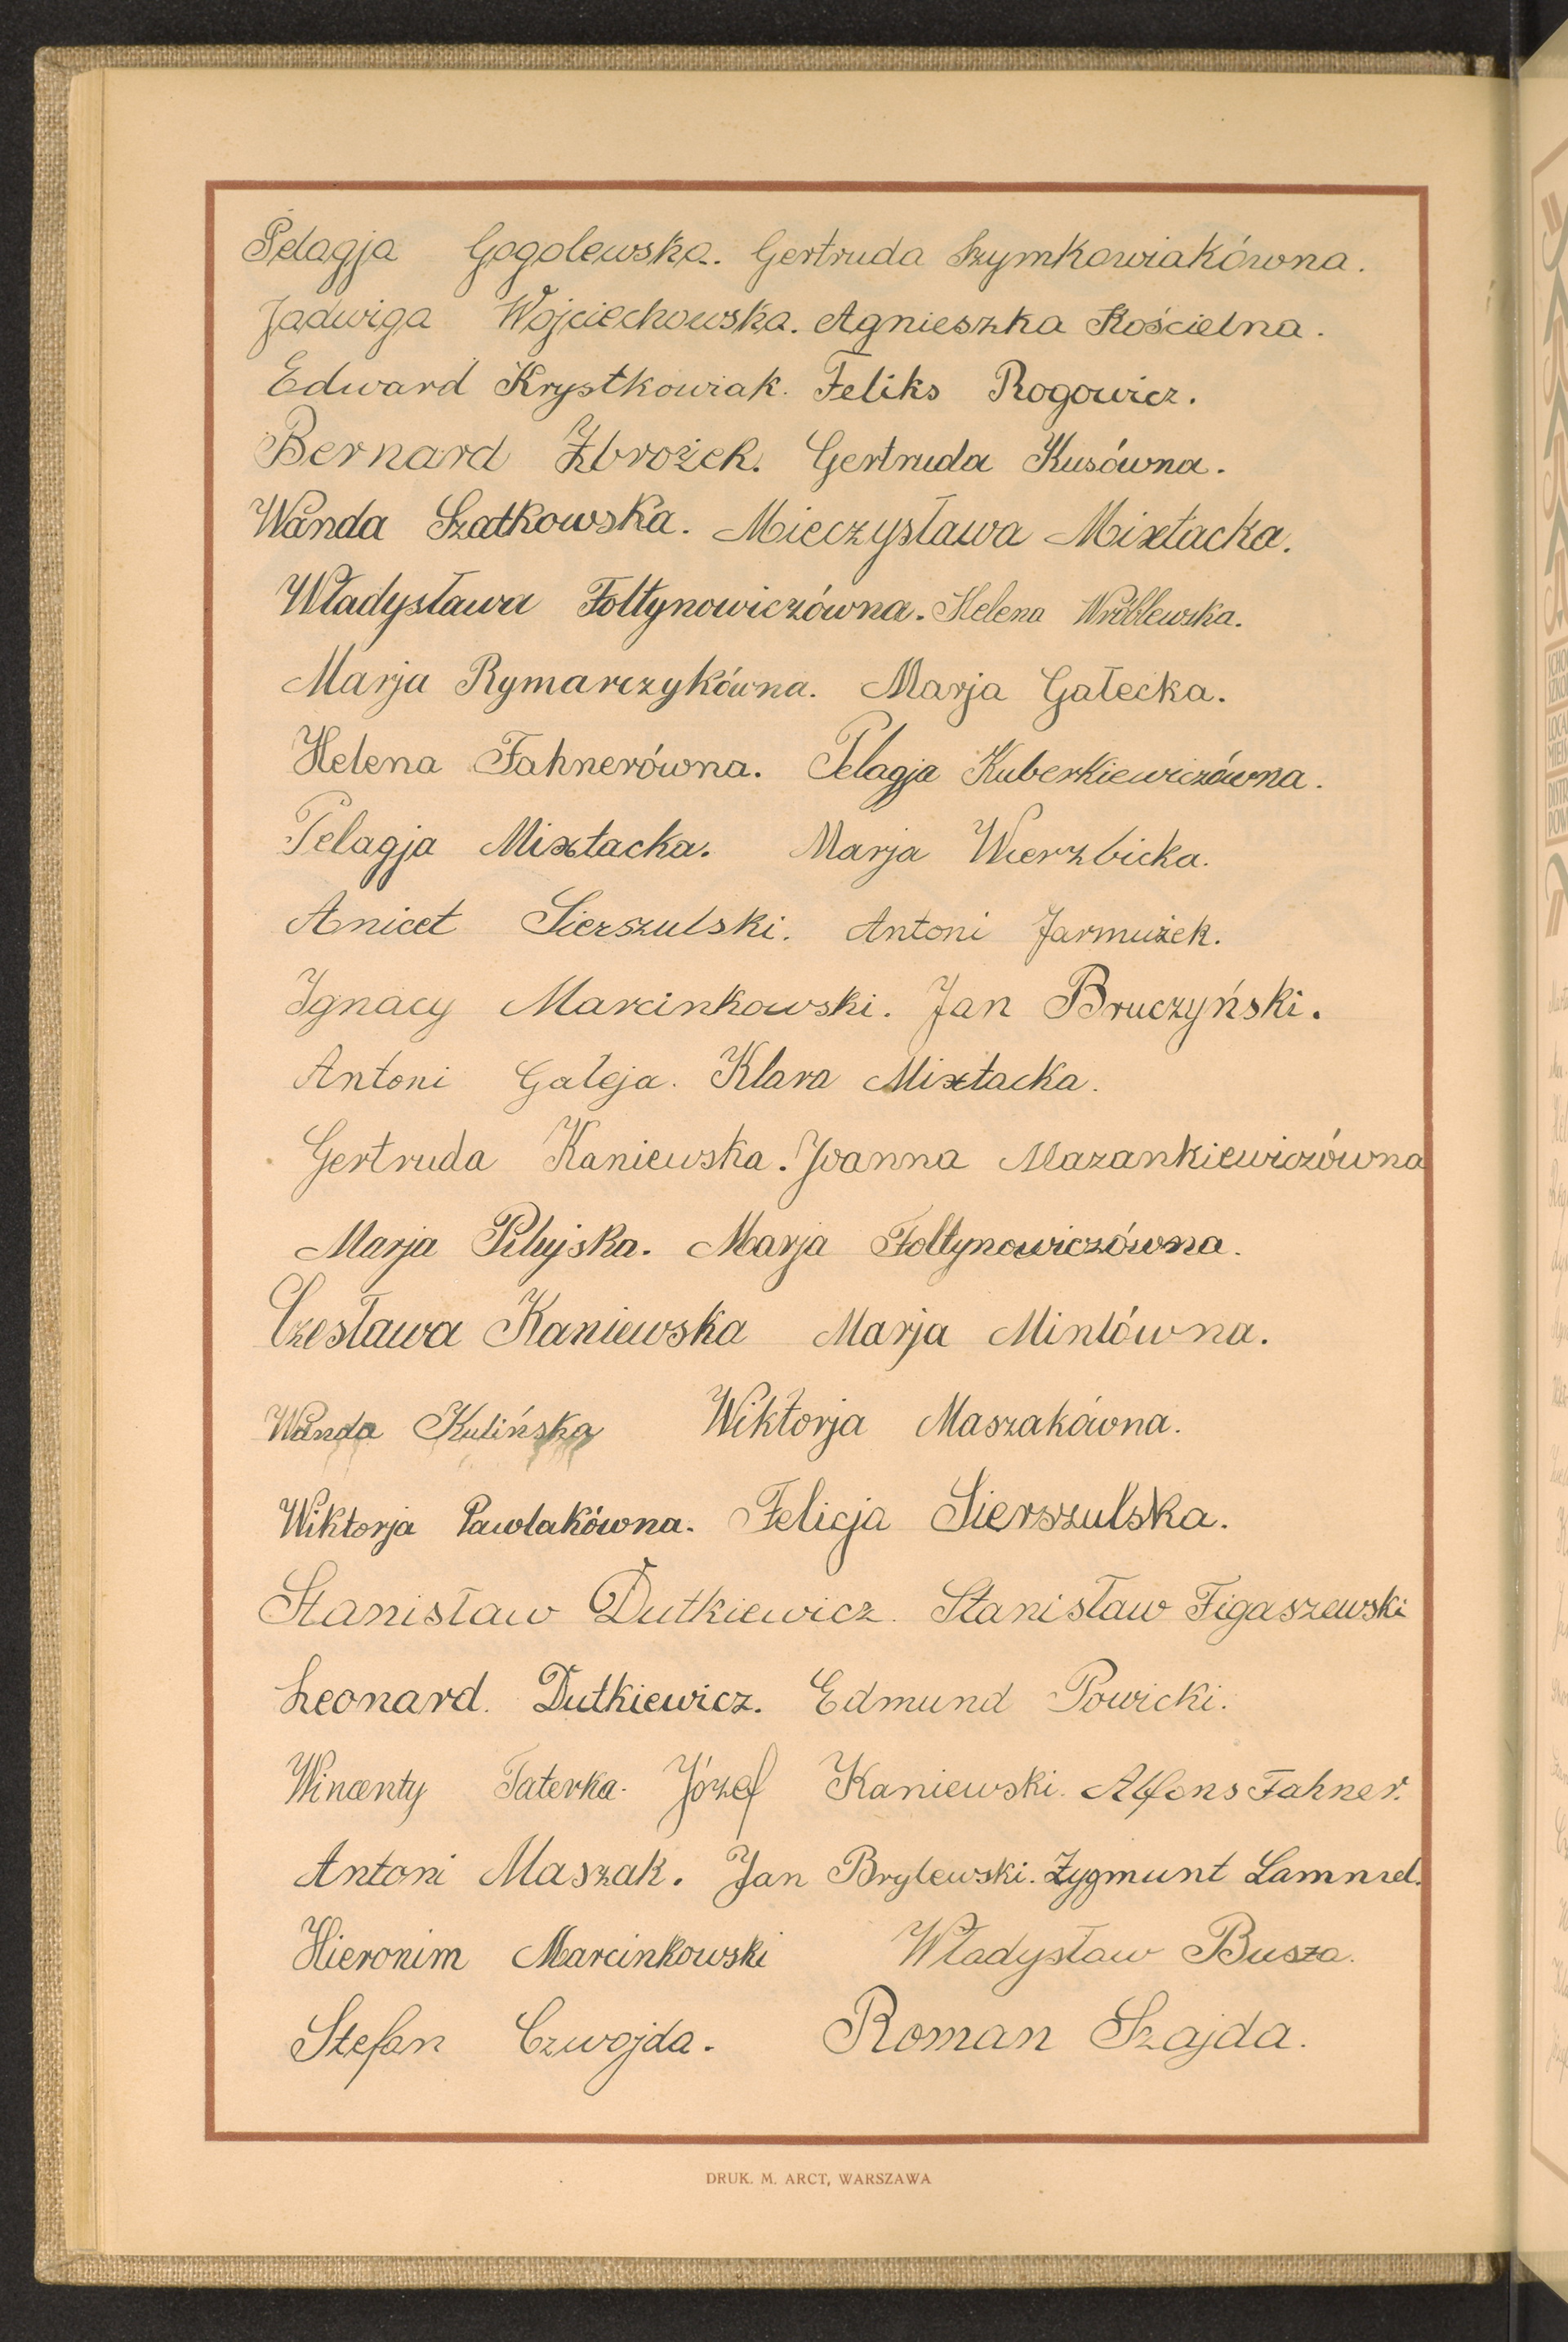 Pelagja Gogolewska. Gertruda Szymkowiakówna.
Jadwiga Wojciechowska. Agnieszka Kościelna.
Edward Krystkowiak. Feliks Rogowicz.
Bernard Zbrożek. Gertruda Kusówna.
Wanda Szatkowska. Mieczysława Mixtacka.
Władysława Fołtynowiczówna. Helena Wróblewska.
Marja Rymarczykówna. Marja Gałecka.
Helena Fahnerówna. Pelagja Kuberkiewiczówna.
Pelagja Mixtacka. Marja Wierzbicka.
Anicet Sierszulski. Antoni Jarmużek.
Ignacy Marcinkowski. Jan Bruczyński.
Antoni Gałęja. Klara Mixtacka.
Gertruda Kaniewska. Joanna Mazankiewiczówna
Marja Marja Fołtynowiczówna.
Czesława Kaniewska Marja Mintówna.
Wanda Kulińska Wiktorja Maszakówna.
Wiktorja Pawlakówna. Felicja Sierszulska.
Stanisław Dutkiewicz. Stanisław Figaszewski
Leonard. Dutkiewicz. Edmund Powicki.
Wincenty Taterka. Józef Kaniewski. Alfons Fahner.
Antoni Maszak. Jan Brylewski. Zygmunt
Hieronim Marcinkowski Władysław Busza.
Stefan Czwojda. Roman Szajda.
DRUK. M. ARCT, WARSZAWA